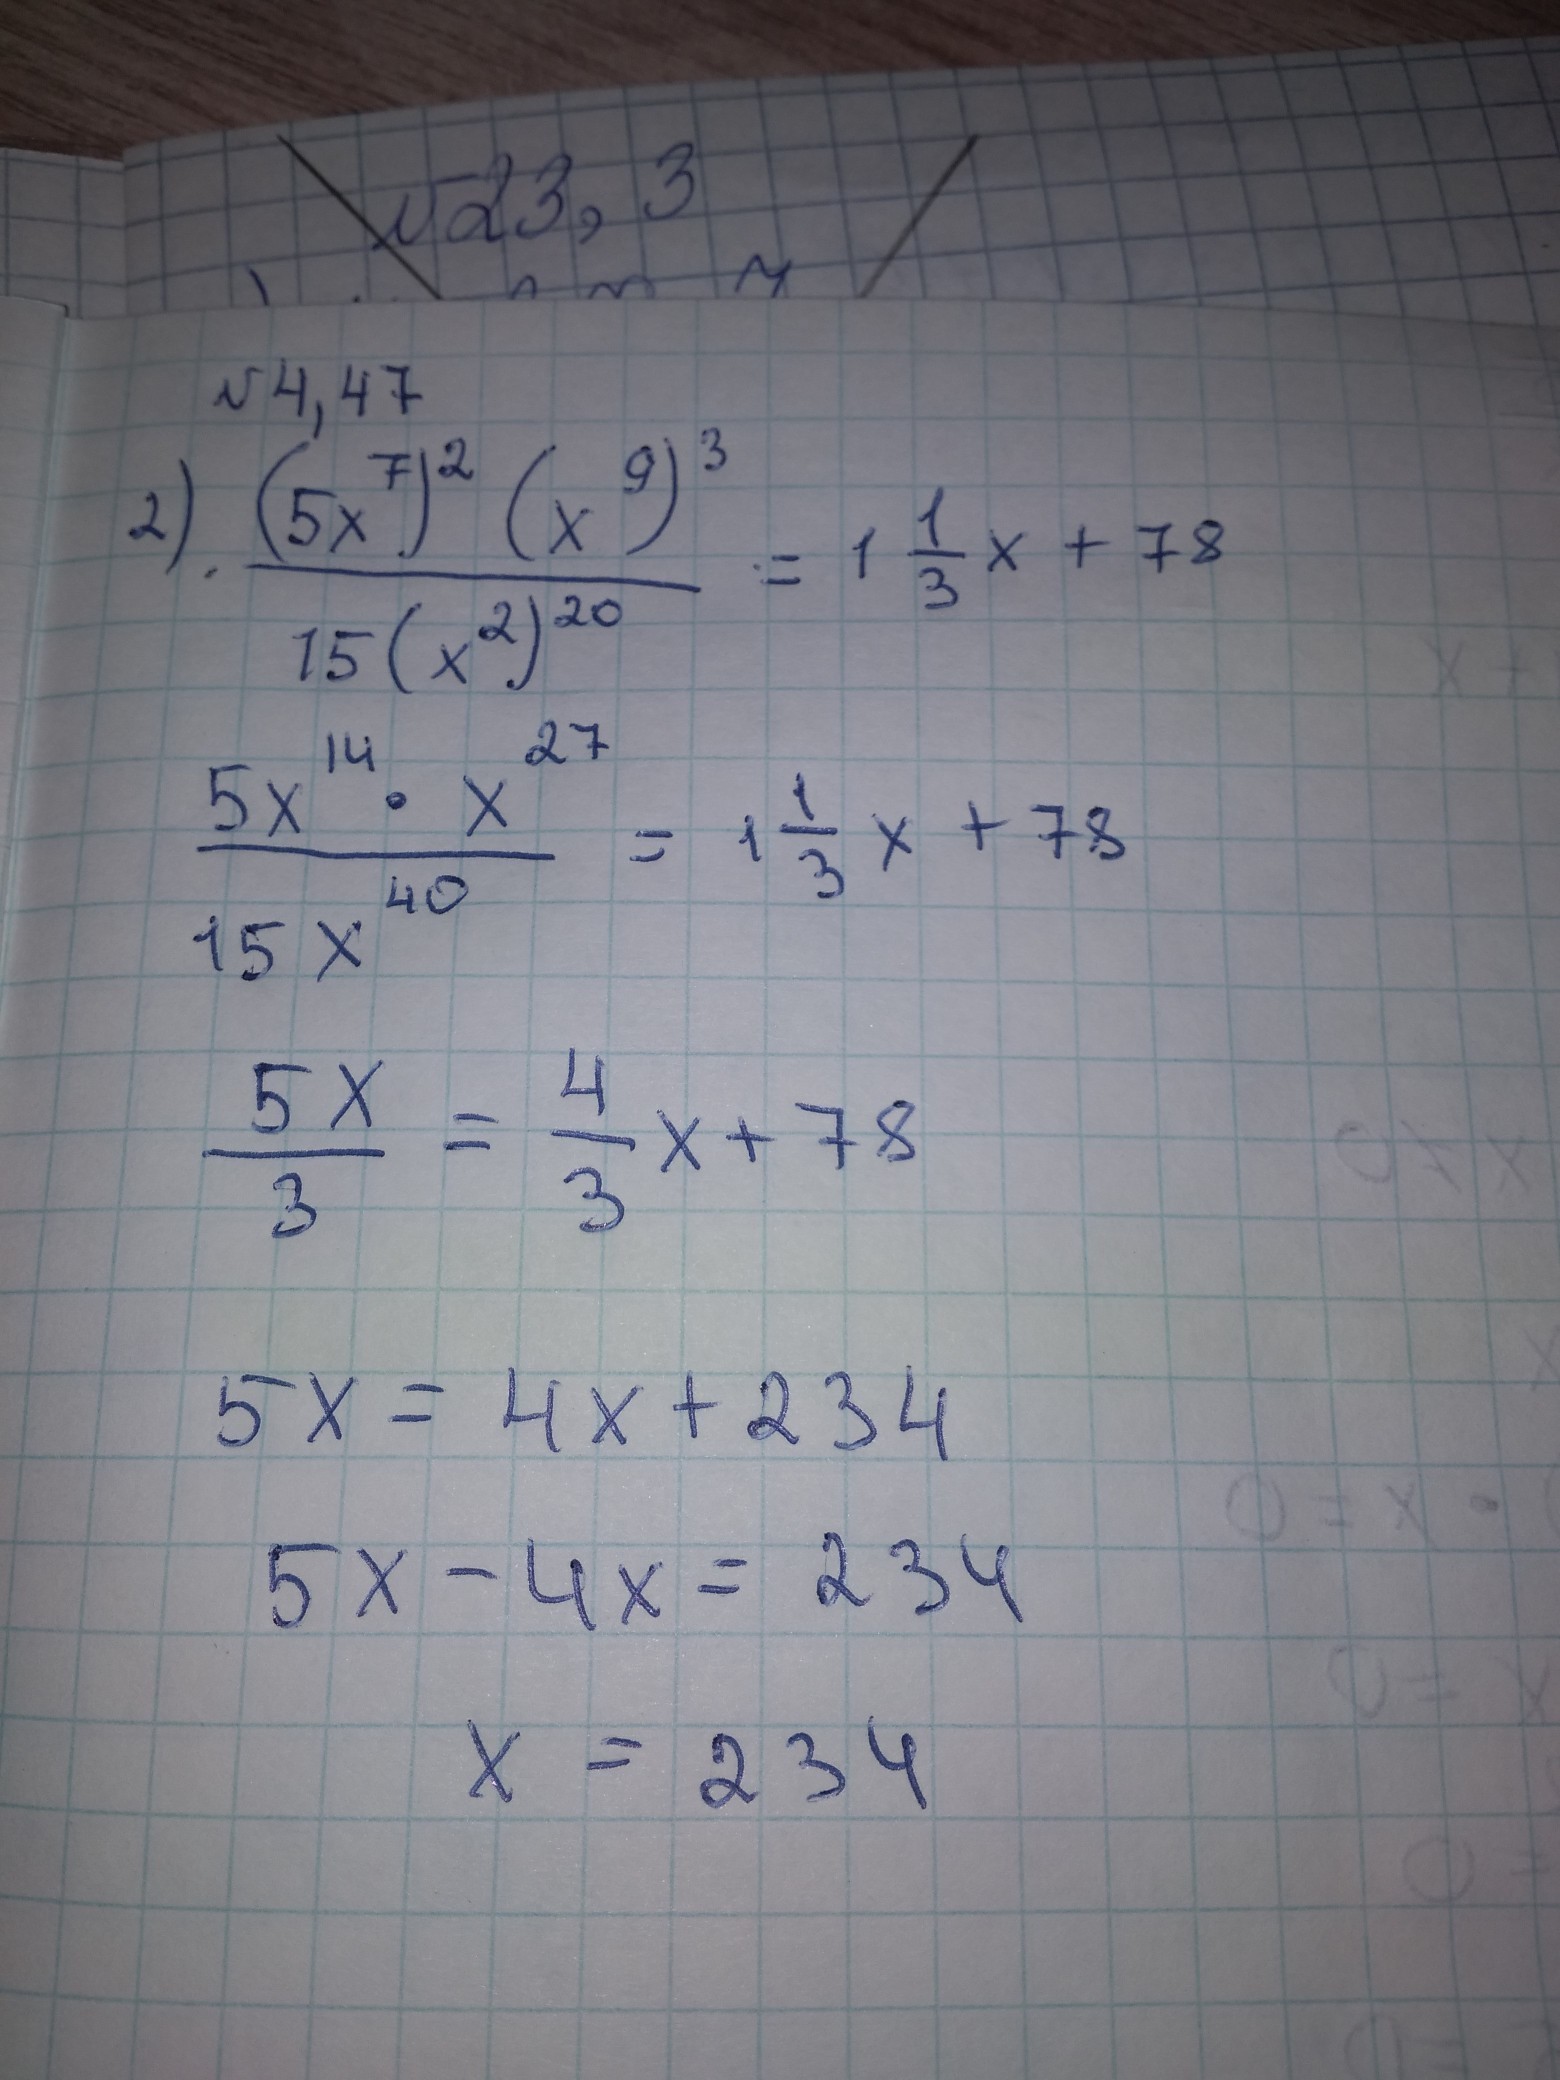 №23,3
№4,47
2). (5x^7)^2 (x^9)^3 / 15(x^2)^20 = 1 1/3 x + 78
5x^14 · x^27 / 15x^40 = 1 1/3 x + 78
5x/3 = 4/3 x + 78
5x = 4x + 234
5x - 4x = 234
x = 234